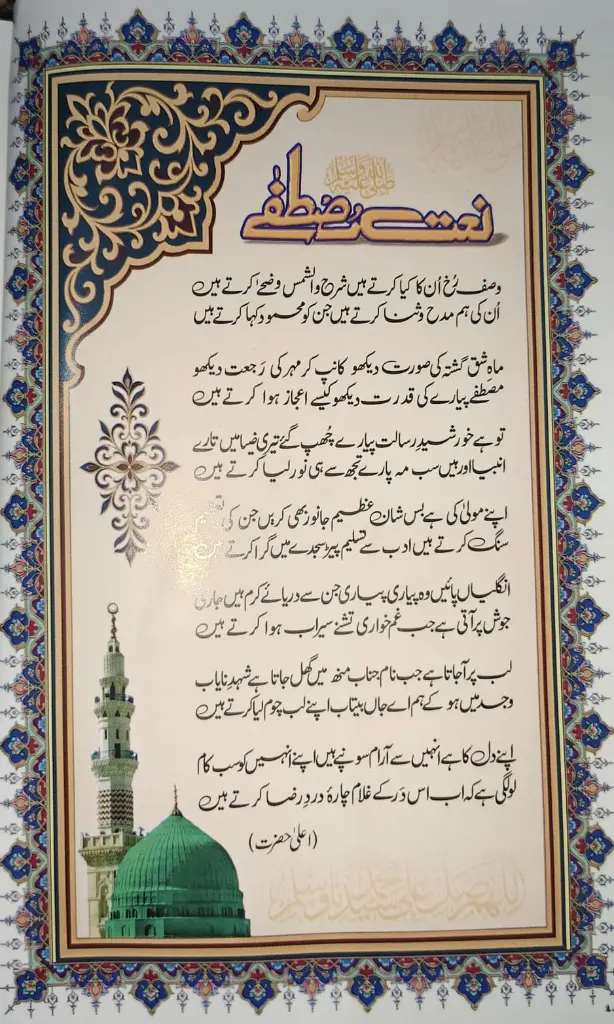 صلی اللہ علیہ وسلم
نعت مصطفٰے
وصف رُخ اُن کا کیا کرتے ہیں شرح والشمس وضحےٰ کرتے ہیں
اُن کی ہم مدح وثنا کرتے ہیں جن کو محمود کہا کرتے ہیں
ماہ شق گشتہ کی صورت دیکھو کانپ کر مہر کی رَجعت دیکھو
مصطفےٰ پیارے کی قدرت دیکھو کیسے اعجاز ہوا کرتے ہیں
تو ہے خورشیدِ رسالت پیارے چُھپ گئے تیری ضیا میں تارے
انبیا اور ہیں سب مہ پارے تجھ سے ہی نور لیا کرتے ہیں
اپنے مولیٰ کی ہے بس شان عظیم جانور بھی کریں جن کی
سنگ کرتے ہیں ادب سے تسلیم پیڑ سجدے میں گرا کرتے ہیں
انگلیاں پائیں وہ پیاری پیاری جن سے دریائے کرم ہیں جاری
جوش پر آتی ہے جب غم خواری تشنے سیراب ہوا کرتے ہیں
لب پر آجاتا ہے جب نام جناب منھ میں گھل جاتا ہے شہدِ نایاب
وجد میں ہو کے ہم اے جاں بیتاب اپنے لب چوم لیا کرتے ہیں
اپنے دل کا ہے انہیں سے آرام سونپے ہیں اپنے انہیں کو سب کام
لو لگی ہے کہ اب اس دَر کے غلام چارۂ دردِ رضا کرتے ہیں
(اعلیٰ حضرت)